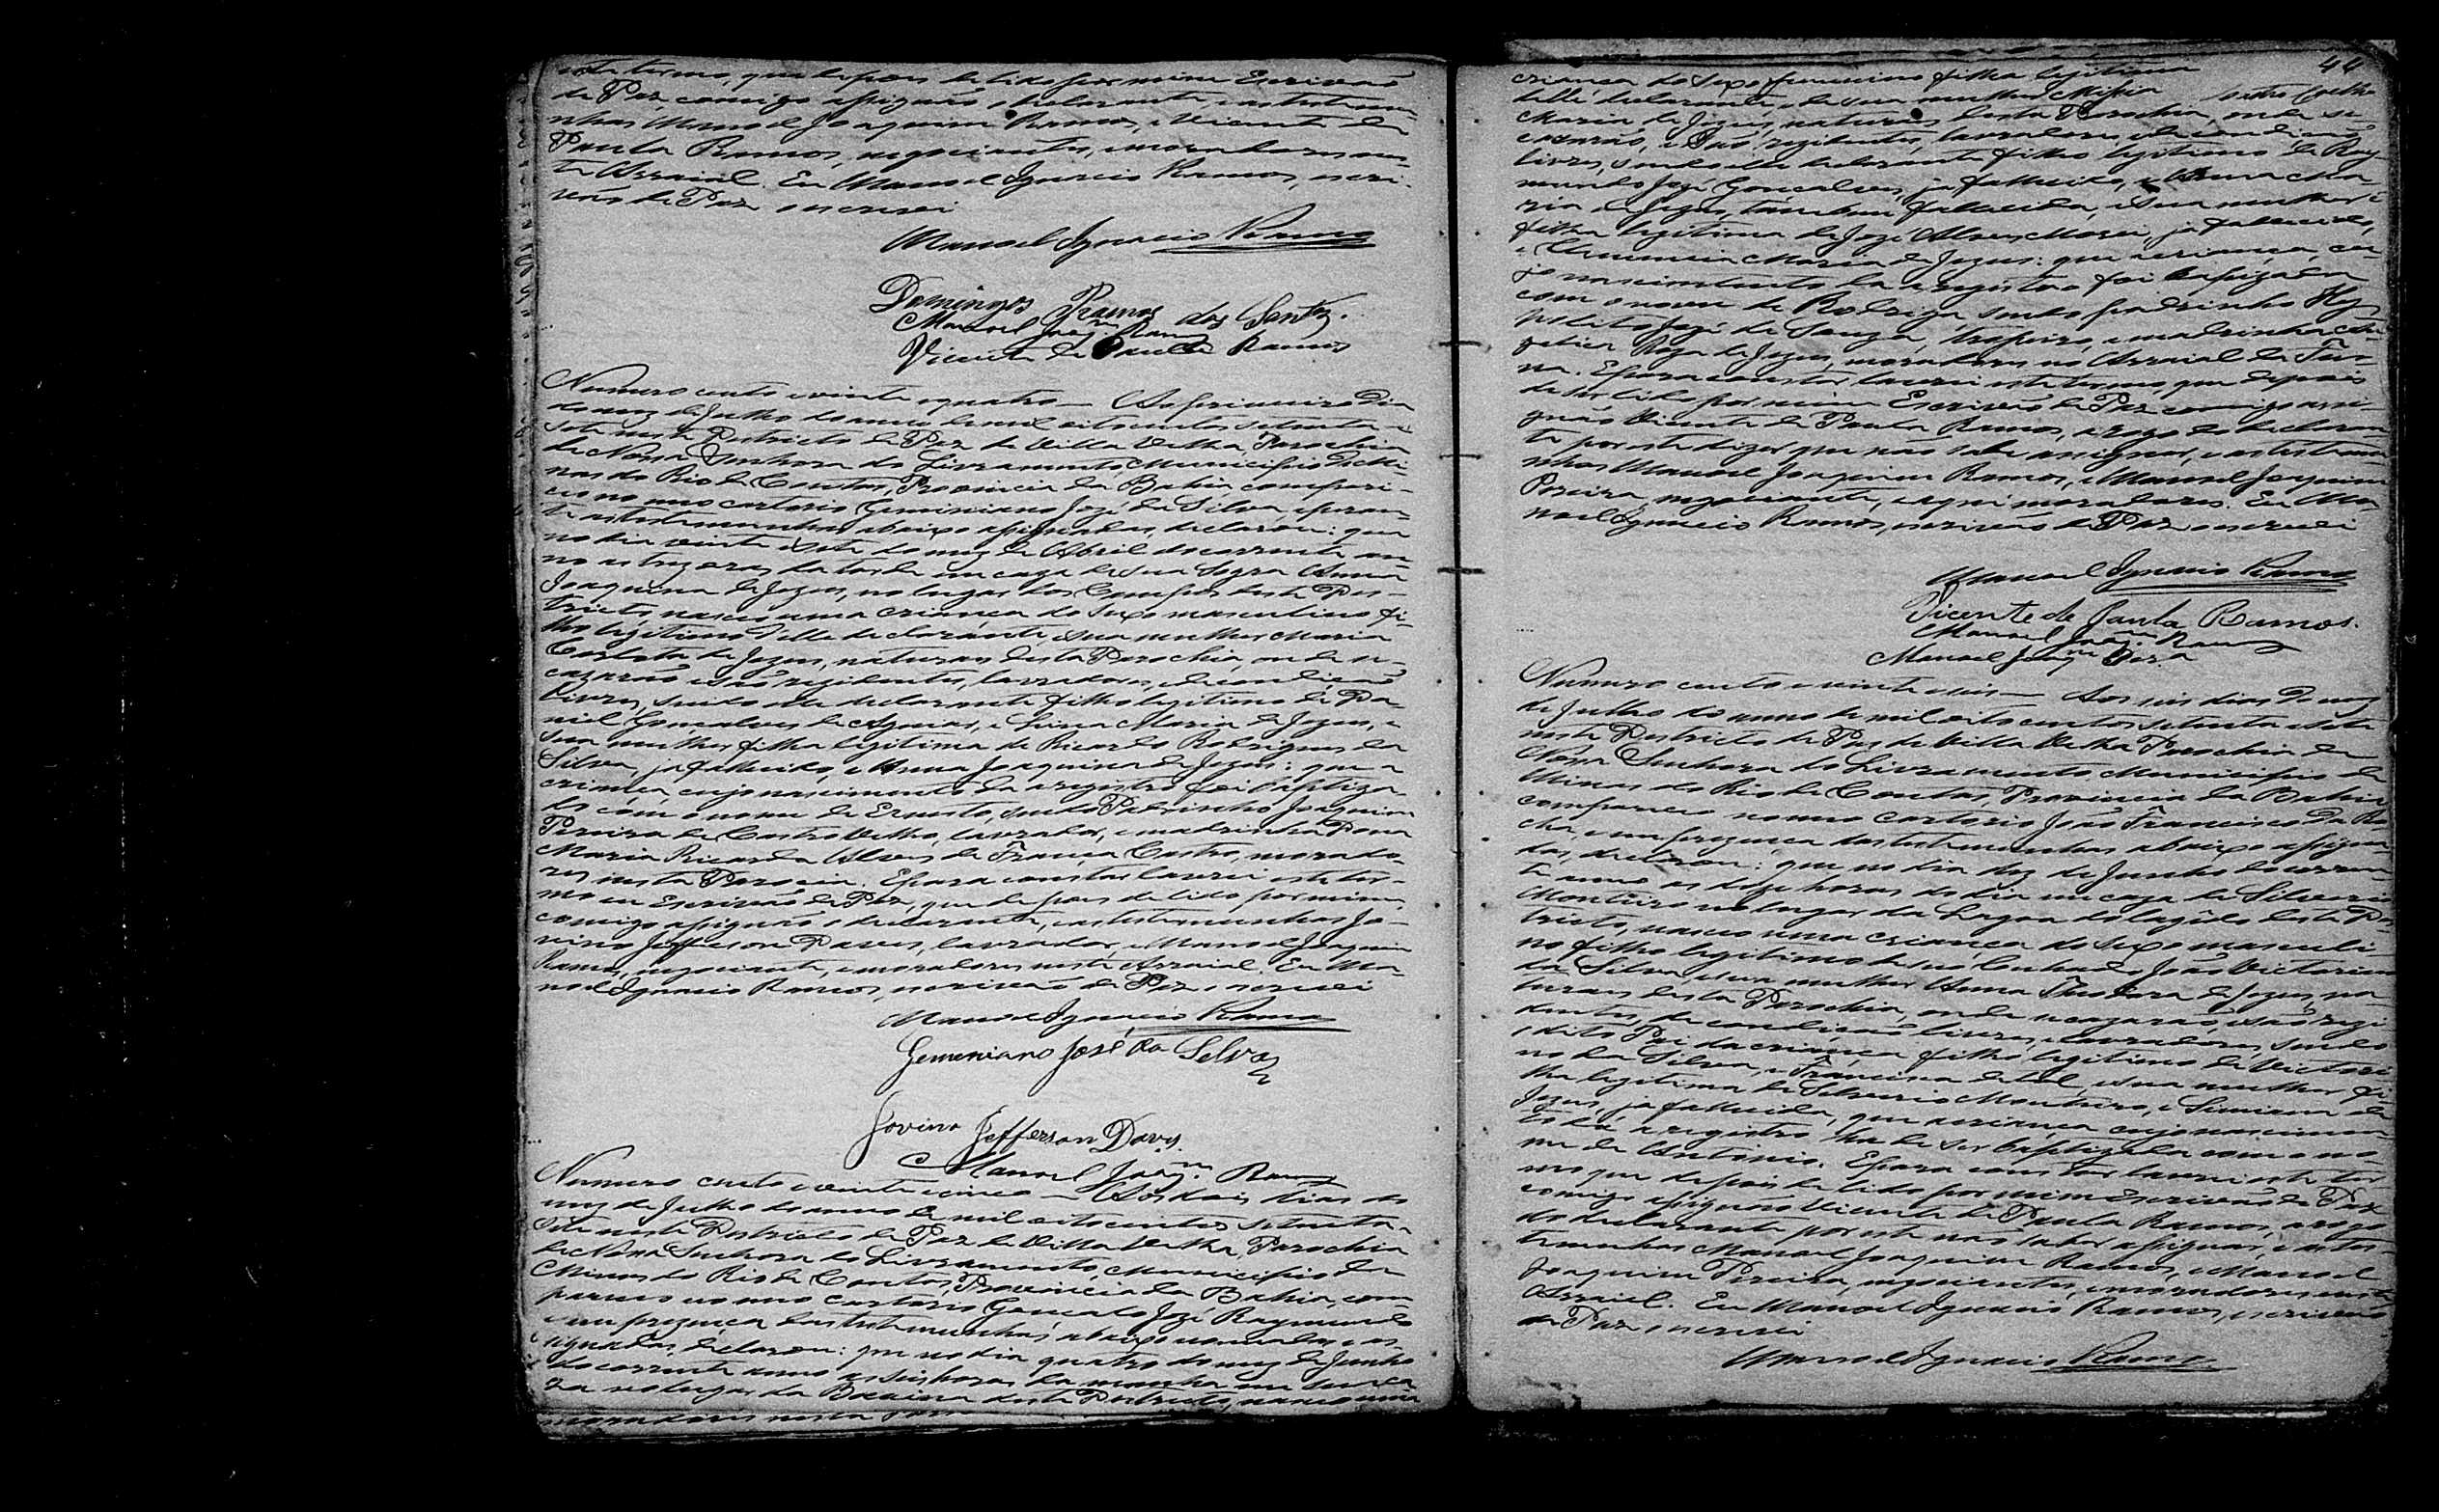 este termo, que depois de lido por mim Escrivão
de Paz, comigo assignão o declarante, e as testemu-
nhas Manoel Joaquim Ramos, e Vicente de
Paula Ramos, negociantes, e moradores nes-
te Arraial. Eu Manoel Ignacio Ramos, escri-
vão de Paz o escrevi
Manoel Ignacio Ramos
Domingos Ramos dos Santos.
Manoel Joaqm Ramos
Vicente de Paula Ramos
Numero cento e vinte e quatro — Ao primeiro dia
do mez de Julho do anno de mil oitocentos setenta e
sete neste Destricto de Paz de Villa Velha, Parochia
de Nossa Senhora do Livramento, Municipio de Mi-
nas do Rio de Contas, Provincia da Bahia, compare-
ceo no meo cartorio Geminiano Jozé da Silva, e peran-
te as testemunhas abaixo assignadas, declarou: que
no dia vinte e sete do mez de Abril do corrente an-
no as trez oras da tarde em caza de sua Sogra Anna
Joaquina de Jezus, no lugar dos Campos deste Des-
tricto, nasceo uma criança do sexo masculino fi-
lho legitimo delle declarante, e sua mulher Maria
Carlota de Jezus, naturaes desta Parochia, onde se
cazarão e são rezidentes, lavradores, e de condição
livres, sendo elle declarante filho legitimo de Da-
niel Gonçalves de Aguiar, e Luiza Maria de Jezus, e
sua mulher filha legitima de Ricardo Rodrigues da
Silva, ja fallecido, e Anna Joaquina de Jezus: que a
criança cujo nascimento da a registro foi baptiza-
do com o nome de Ernesto, sendo Padrinho Joaquim
Pereira de Castro Velho, lavrador, e madrinha Dona
Maria Ricarda Alves de França Castro, morado-
res nesta Parocia. E para constar lavrei este ter-
mo eu Escrivão de Paz, que depois de lido por mim,
comigo assignão o declarante, e as testemunhas Jo-
vino Jefferson Daves, lavrador, e Manoel Joaquim
Ramos, negociante, e moradores neste Arraial. Eu Ma-
noel Ignacio Ramos, escrivão de Paz o escrevi
Manoel Ignacio Ramos
Gemeniano José da Selva
Jovino Jefferson Davys.
Manoel Joaqm. Ramos
Numero cento e vinte e cinco — Aos dois dias do
mez de Julho do anno de mil oitocentos setenta e
sete neste Destricto de Paz de Villa Velha, Parochia
de Nossa Senhora do Livramento, Municipio de
Minas do Rio de Contas, Provincia da Bahia, com-
pareceo no meo cartorio Gonçalo Jozé Raymundo
e em prezença das testemunhas abaixo nomeadas, e as-
signadas, declarou: que no dia quatro do mez de Junho
do corrente anno as seis horas da manha em sua ca
za no lugar da Bocaina deste Destricto, nasceo uma
moradores nesta
44
criança do sexo femenino filha legitima
delle declarante e de sua mulher
Maria de Jezus, naturaes desta Parochia, onde se
cazarão, e são rezidentes, lavradores, e de condição
livres, sendo elle declarante filho legitimo de Ray-
mundo Jozé Gonçalves, ja fallecido, e Anna Ma-
ria de Jezus, tambem fallecida, e sua mulher é
filha legitima de Jozé Alves Moreira, ja fallecido,
e Clemencia Maria de Jezus: que a criança, cu-
jo nascimento da a registro foi baptizada
com o nome de Rodriga sendo padrinho Hy-
polito Jozé de Souza, tropeiro, e madrinha An-
gelica Roza de Jezus, moradores no Arraial da Fur-
na. E para constar lavrei este termo, que depois
de ser lido por mim Escrivão de Paz comigo assi-
gnão Vicente de Paula Ramos, a rogo do declaran-
te por este dizer que não sabe assignar, e as testemu-
nhas Manoel Joaquim Ramos, e Manoel Joaquim
Pereira, negociantes, e aqui moradores. Eu Ma-
noel Ignacio Ramos, escrivão de Paz o escrevi
Manoel Ignacio Ramos
Vicente de Paula Ramos.
Manoel Joaqm. Ramos
Manoel Joaqm Per.a
Numero cento e vinte e seis — Aos seis dias do mez
de Julho do anno de mil oitocentos setenta e sete
neste Destricto de Paz de Villa Velha Parochia de
Nossa Senhora do Livramento Municipio de
Minas do Rio de Contas, Provincia da Bahia,
compareceo no meo cartorio João Francisco da Ro-
cha, e em prezença das testemunhas abaixo assigna-
das, declarou: que no dia dez de Junho do corren-
te anno as doze horas do dia em caza de Silverio
Monteiro no lugar da Lagoa do lagêdo deste Des-
tricto, nasceo uma criança do sexo masculi-
no filho legitimo de seo Cunhado João Victorino
da Silva, e sua mulher Anna Theodora de Jezus, na-
turaes desta Parochia, onde se cazarão, e são rezi-
dentes, de condição livres, e lavradores, sendo
o dito Pai da criança filho legitimo de Victori-
no da Silva, e Francisca de tal, e sua mulher fi-
lha legitima de Silverio Monteiro, e Simiana de
Jezus, ja fallecida, que a criança cujo nascimen-
to da a registro ha de ser baptizada com o no-
me de Antonio. E para constar lavrei este ter-
mo que depois de lido por mim Escrivão de Paz
comigo assignão Vicente de Paula Ramos, a rogo
do declarante por este não saber assignar, e as tes-
temunhas Manoel Joaquim Ramos, e Manoel
Joaquim Pereira, negociantes, e moradores neste
Arraial. Eu Manoel Ignacio Ramos, escrivão
de Paz o escrevi
Manoel Ignacio Ramos